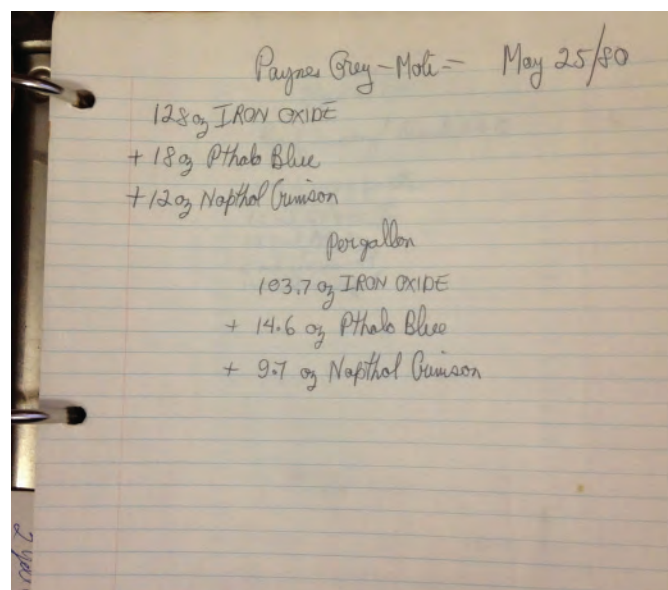 Paynes Grey - Moli - May 25/80
128oz IRON OXIDE
+ 18oz Pthalo Blue
+ 12oz Napthol Crimson
Per gallon
103.7 oz IRON OXIDE
+ 14.6 oz Pthalo Blue
+ 9.7 oz Napthol Crimson
2